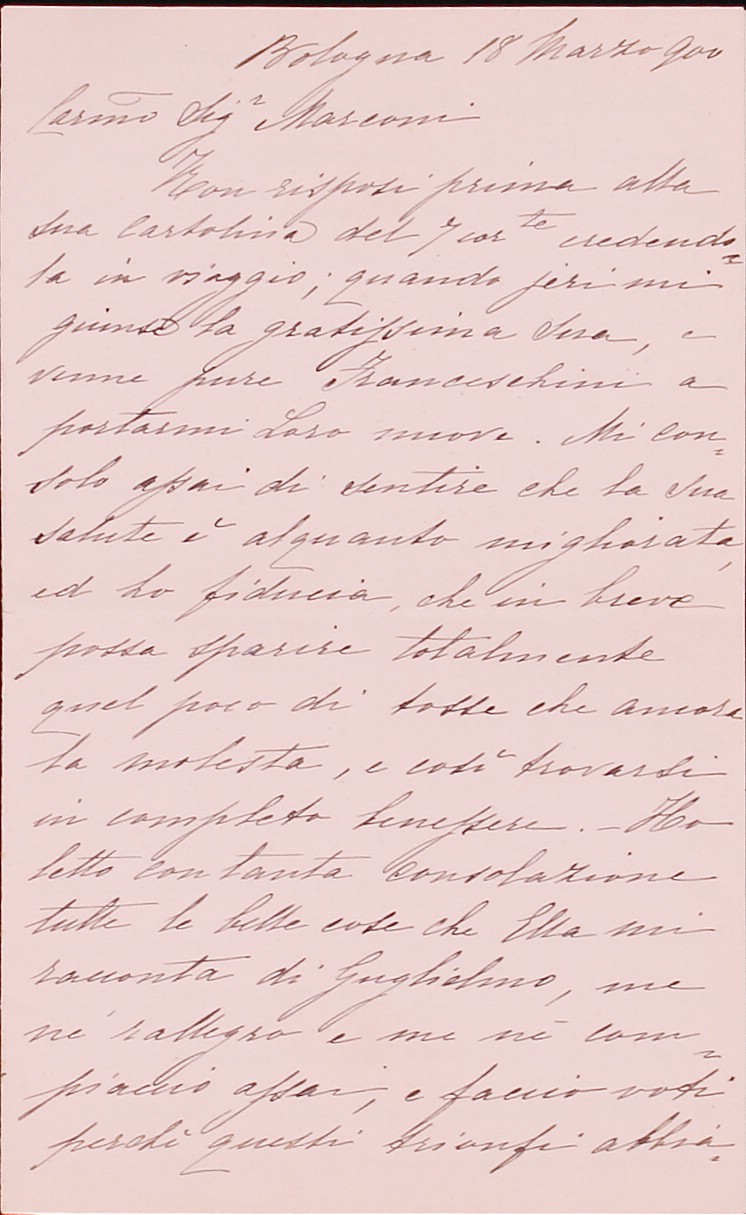 Bologna 18 Marzo 900
Carmo Sigr Marconi
Non risposi prima alla
sua Cartolina del 7 corte credendo=
la in viaggio; quando jeri mi
giunse la gratissima Sua, e
venne pure Franceschini a
portarmi Loro nuove. Mi con=
solo assai di sentire che la Sua
salute è alquanto migliorata,
ed ho fiducia, che in breve
possa sparire totalmente
quel poco di tosse che ancora
la molesta, e così trovarsi
in completo benessere. – Ho
letto con tanta consolazione
tutte le belle cose che Ella mi
racconta di Guglielmo, me
nè rallegro e me nè com=
piaccio assai, e faccio voti
perchè questi trionfi abbia=